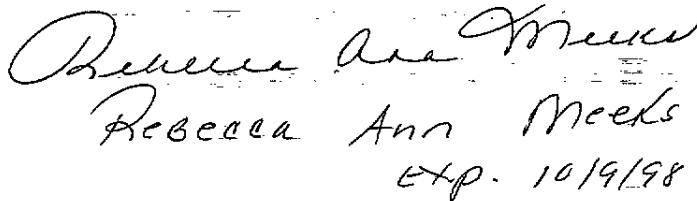 Rebecca Ann Meeks
Rebecca Ann Meeks
Exp. 10/9/98